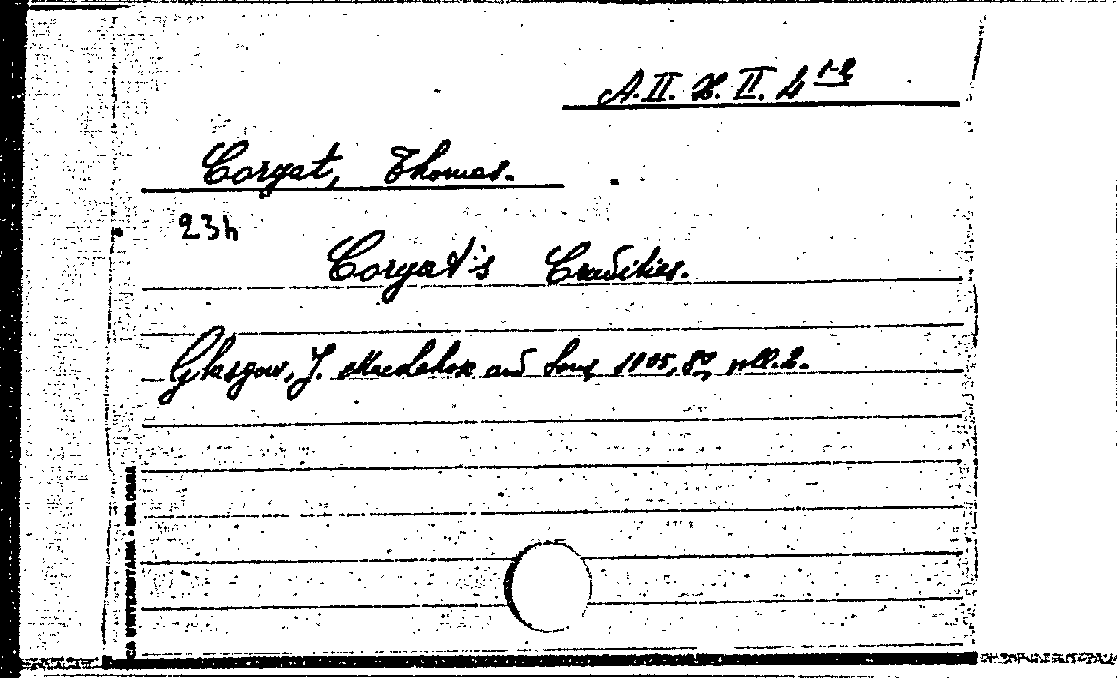 A. II. H. II. 4 1-2
Coryat, Thomas.
23h
Coryat's Crudities.
Glasgow, J. MacLehose and Sons, 1905, 8°, voll. 2.
CA UNIVERSITARIA - BOLOGNA